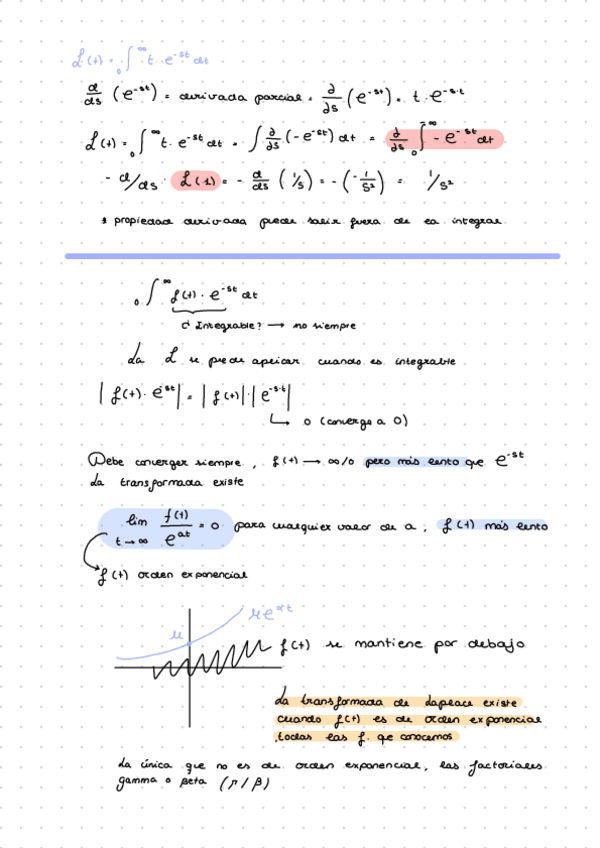 ℒ(t) = ₀∫^∞ t · e^-st dt
d/ds (e^-st) = derivada parcial = ∂/∂s (e^-st) = t · e^-s·t
ℒ(t) = ₀∫^∞ t · e^-st dt = ∫ ∂/∂s (-e^-st) dt = ∂/∂s ₀∫^∞ - e^-st dt
- d/ds · ℒ(1) = - d/ds (1/s) = - (-1/s²) = 1/s²
* propiedad derivada puede salir fuera de la integral
₀∫^∞ f(t) · e^-st dt
¿ Integrable? → no siempre
La ℒ se puede aplicar cuando es integrable
|f(t) · e^-st| = |f(t)| · |e^-s·t|
↳ 0 (converge a 0)
Debe converger siempre, f(t) → ∞/0 pero más lento que e^-st
La transformada existe
lim t→∞ f(t)/e^at = 0 para cualquier valor de a, f(t) más lento
f(t) orden exponencial
μ μe^αt
f(t) se mantiene por debajo
La transformada de Laplace existe
cuando f(t) es de orden exponencial
todas las f. que conocemos
La única que no es de orden exponencial, las factoriales
gamma o beta (Γ / β)